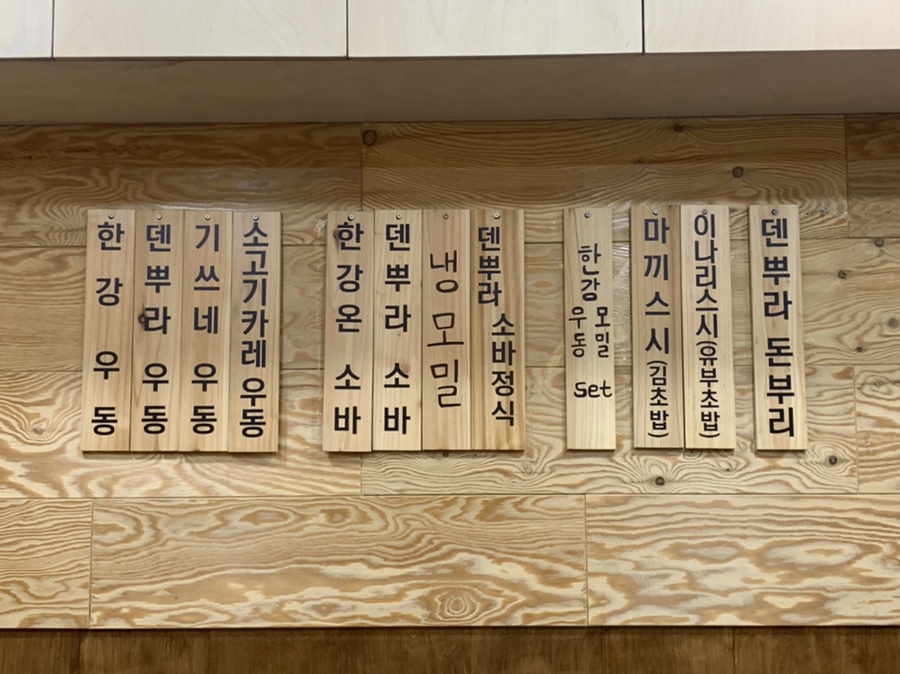 한강 우동
덴뿌라 우동
기쓰네 우동
소고기카레 우동
한강온 소바
덴뿌라 소바
냉모밀
덴뿌라 소바정식
한강
우동 모밀
set
마끼스시(김초밥)
이나리스시(유부초밥)
덴뿌라 돈부리